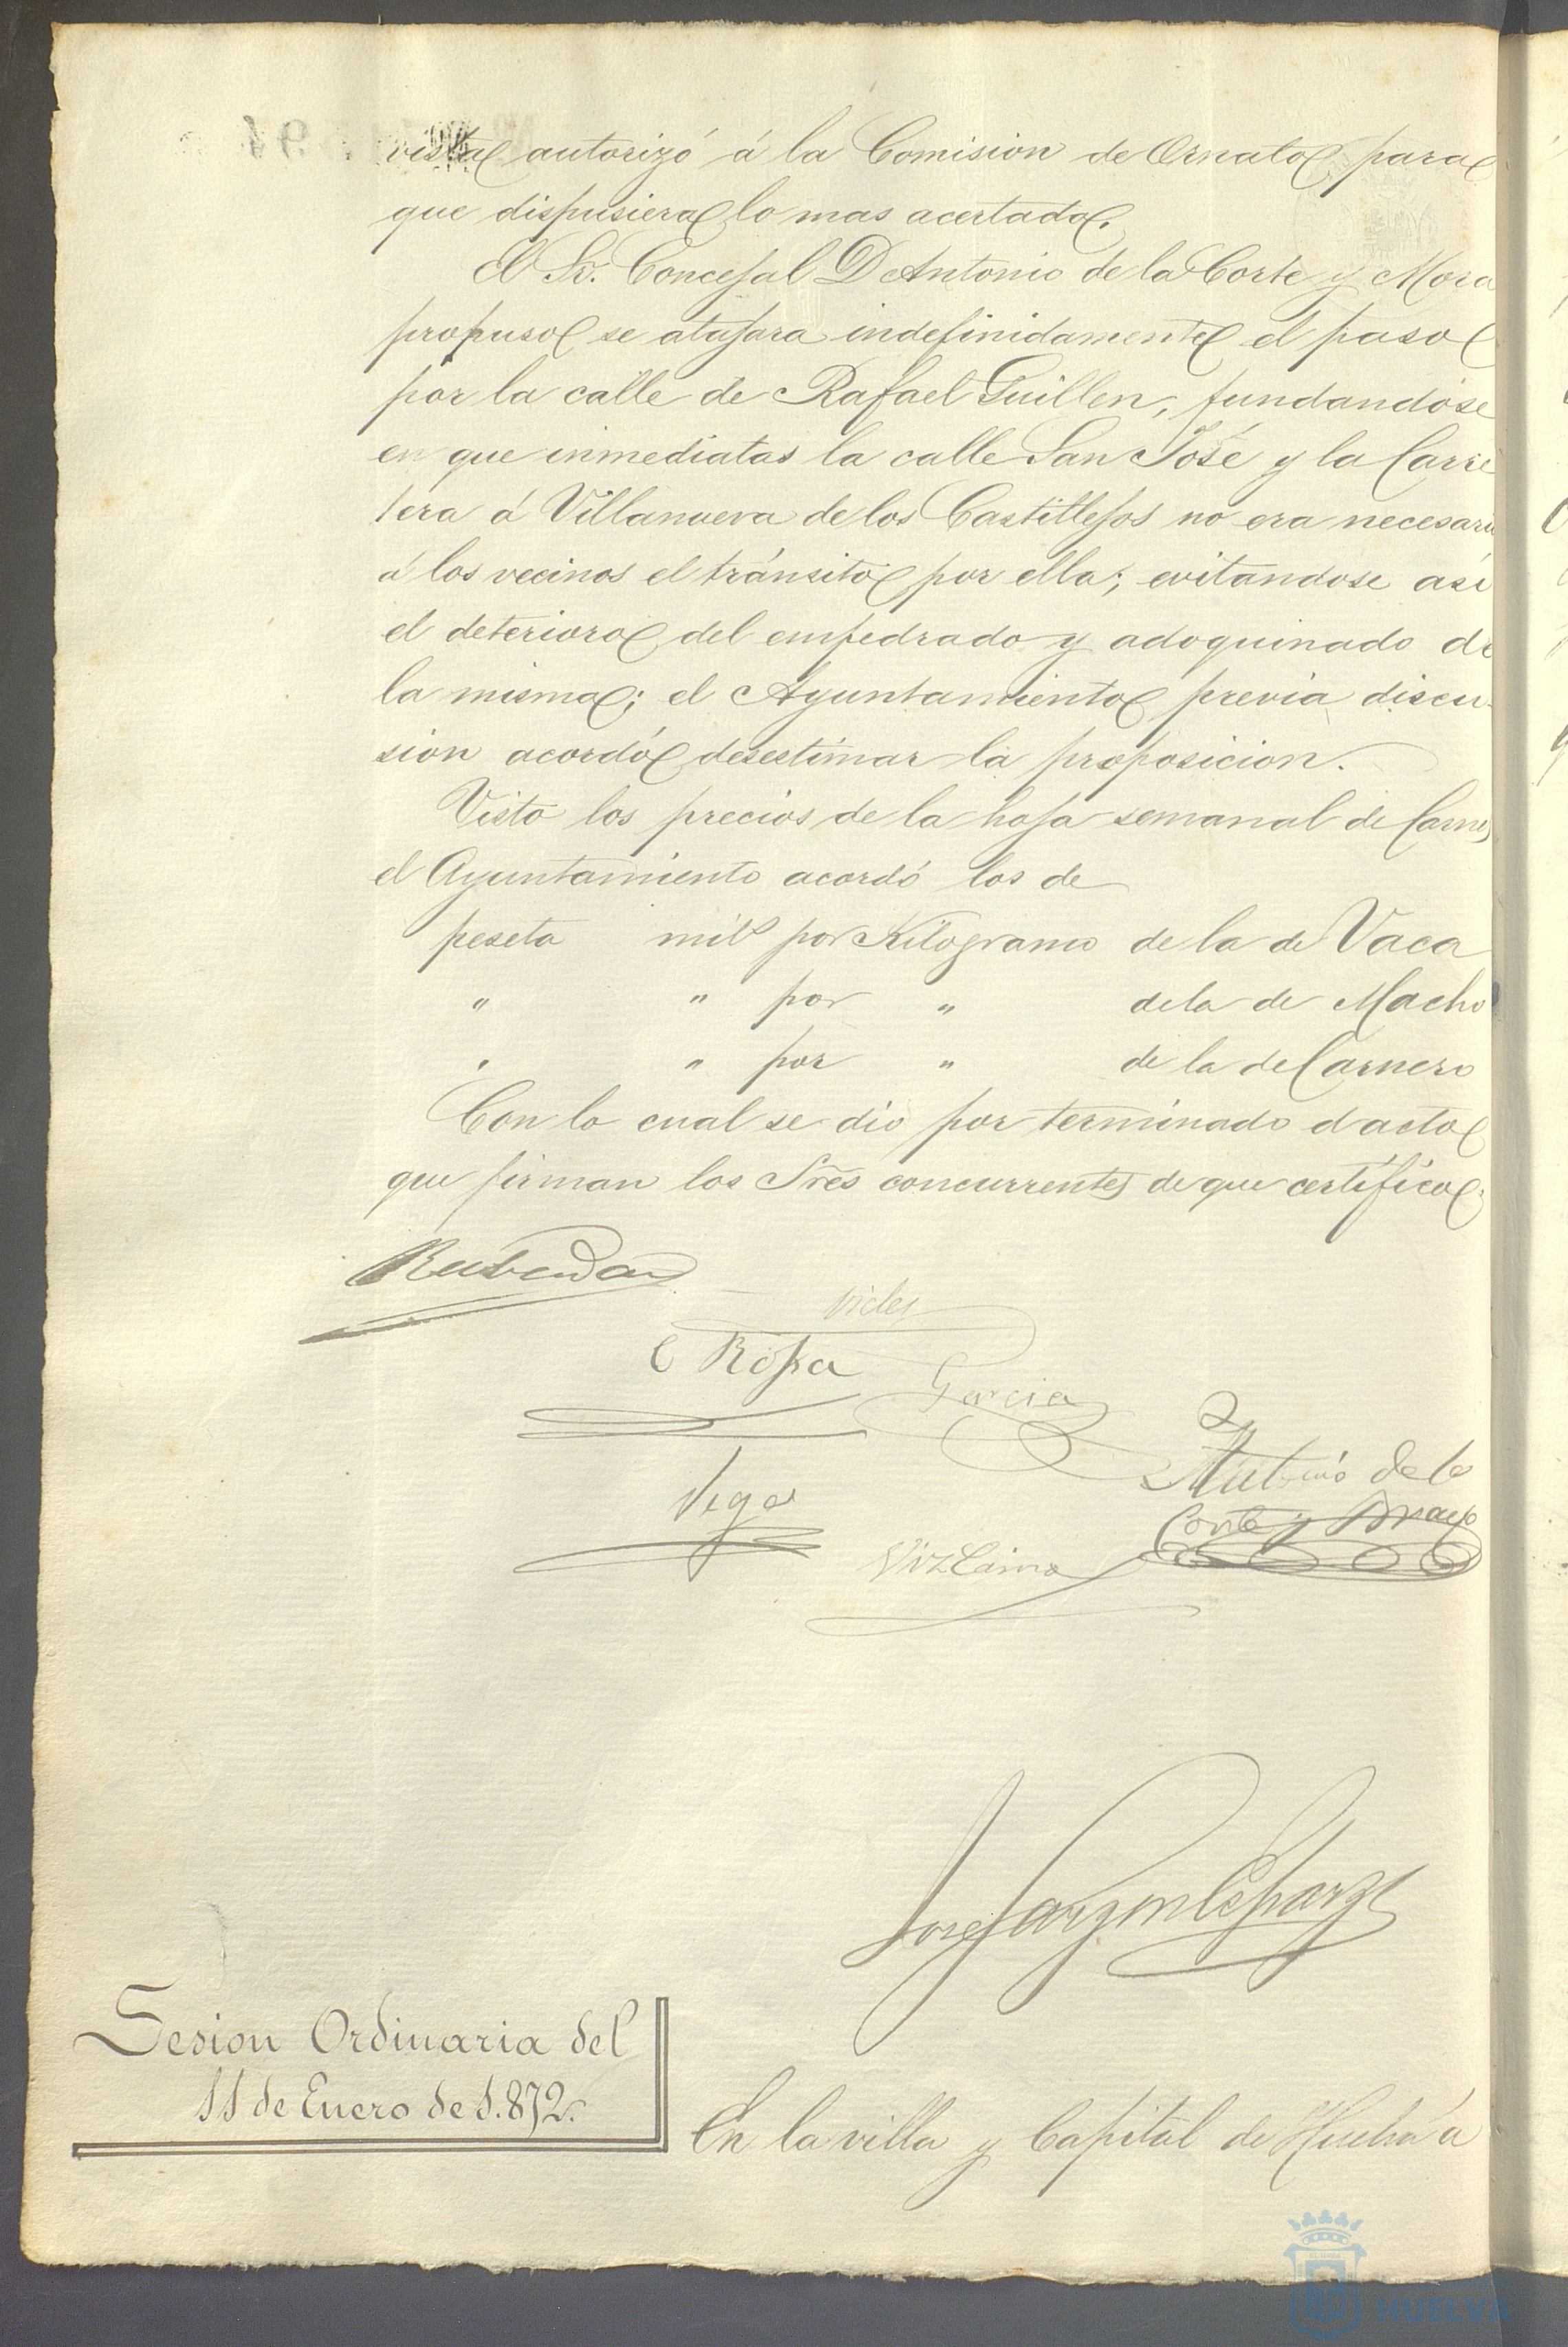 vista autorizó á la Comision de Ornato para
que dispusiera lo mas acertado.
El Sr. Concejal D Antonio de la Corte y Mora
propuso se atajara indefinidamente el paso
por la calle de Rafael Guillen, fundandose
en que inmediatas la calle San José y la Carre
tera á Villanueva de los Castillejos no era necesario
á los vecinos el tránsito por ella; evitandose asi
el deterioro del empedrado y adoquinado de
la misma; el Ayuntamiento previa discu-
sion acordó desestimar la proposicion.
Visto los precios de la hoja semanal de Carnes
el Ayuntamiento acordó los de
peseta mil por Kilogramo de la de Vaca
" " por " de la de Macho
" " por " de la de Carnero
Con lo cual se dio por terminado el acto
que firman los Sres concurrentes de que certifico.
Vides
C Rioja
Garcia
Vega
Antonio de la
Corte y
Vizcaino
Jose
Sesion Ordinaria del
11 de Enero de 1.872.
En la villa y Capital de Huelva a
HUELVA